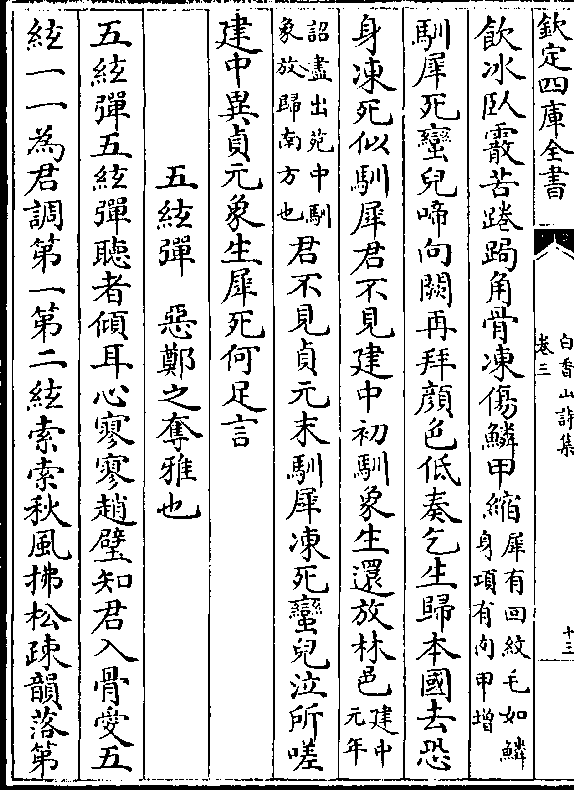 欽定四庫全書
白香山詩集
卷三
十三
飲冰卧霰苦踡跼角骨凍傷鱗甲縮犀有回紋毛如鱗
身項有肉甲增
馴犀死蠻兒啼向闕再拜顔色低奏乞生歸本國去恐
身凍死似馴犀君不見建中初馴象生還放林邑建中
元年
詔盡出苑中馴
象放歸南方也君不見貞元末馴犀凍死蠻兒泣所嗟
建中異貞元象生犀死何足言
五絃彈 惡鄭之奪雅也
五絃彈五絃彈聽者傾耳心寥寥趙璧知君入骨愛五
絃一一為君調第一第二絃索索秋風拂松疎韻落第